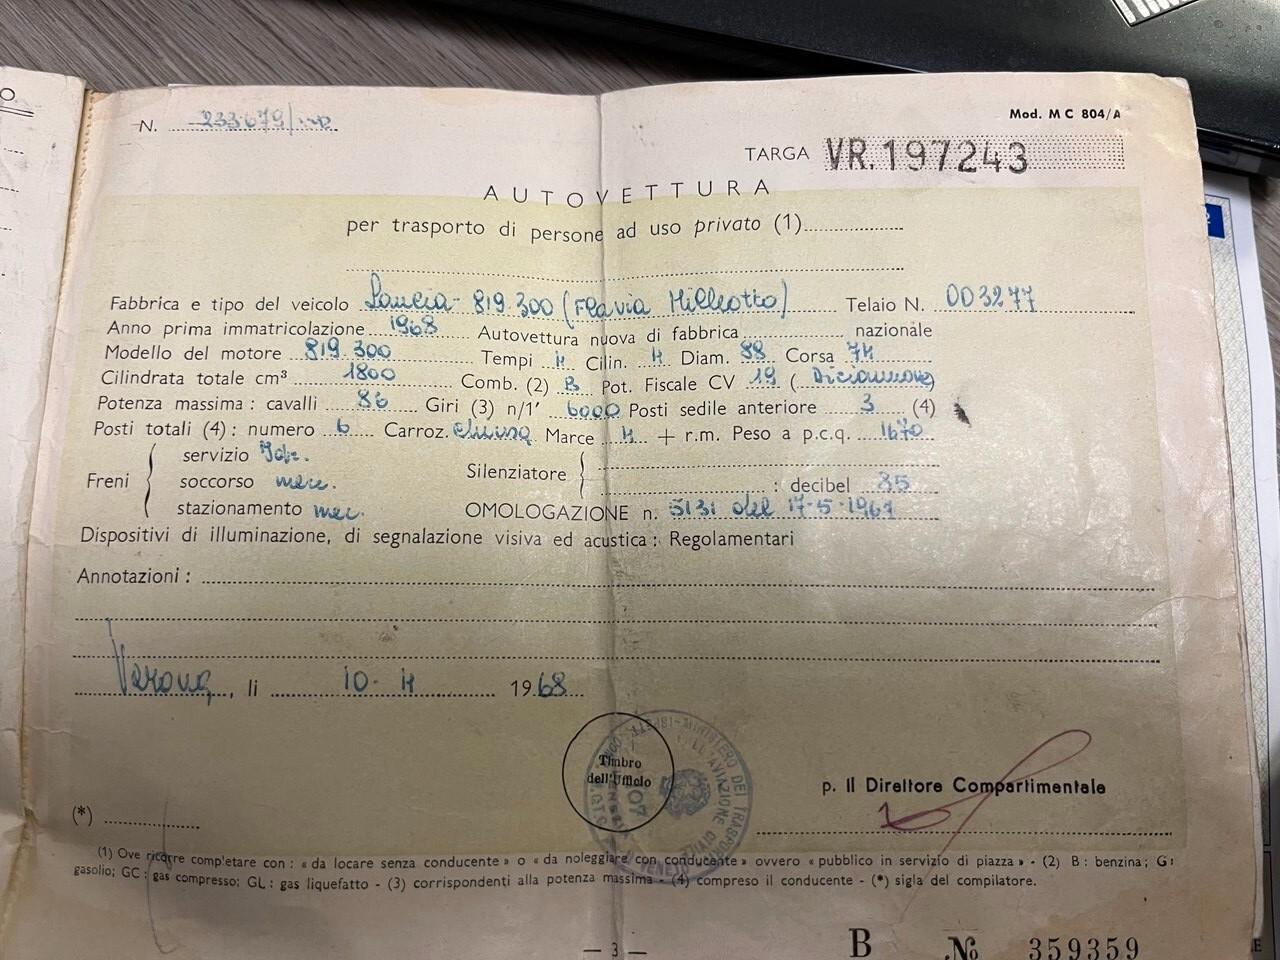 O
N. 233679
Mod. M C 804/A
TARGA VR.197243
AUTOVETTURA
per trasporto di persone ad uso privato (1)
Fabbrica e tipo del veicolo Lancia - 819.300 (Flavia Milleotto) Telaio N. 003277
Anno prima immatricolazione 1968 Autovettura nuova di fabbrica nazionale
Modello del motore 819.300 Tempi 4 Cilin. 4 Diam. 88 Corsa 74
Cilindrata totale cm³ 1800 Comb. (2) B Pot. Fiscale CV 19 (Diciannove)
Potenza massima: cavalli 86 Giri (3) n/1' 6000 Posti sedile anteriore 3 (4)
Posti totali (4): numero 6 Carroz. chiusa Marce 4 + r.m. Peso a p.c.q. 1670
Freni { servizio Idr.
soccorso mecc.
stazionamento mec.
Silenziatore { : decibel 85
OMOLOGAZIONE n. 5131 del 17-5-1967
Dispositivi di illuminazione, di segnalazione visiva ed acustica: Regolamentari
Annotazioni:
Verona, li 10-4 1968
Timbro
dell'Ufficio
p. Il Direttore Compartimentale
(*)
(1) Ove ricorre completare con: « da locare senza conducente » o « da noleggiare con conducente » ovvero « pubblico in servizio di piazza » - (2) B: benzina; G:
gasolio; GC: gas compresso; GL: gas liquefatto - (3) corrispondenti alla potenza massima - (4) compreso il conducente - (*) sigla del compilatore.
— 3 —
B № 359359